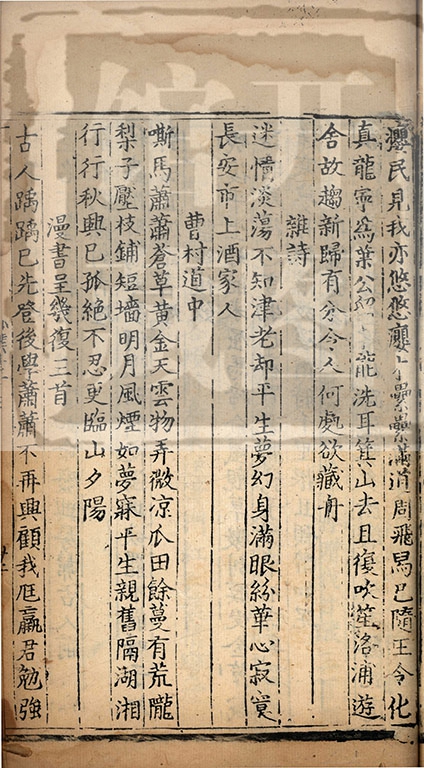 瀴民見我亦悠悠癭木纍纍滿道周飛舄已隨王令化
真龍寧為葉公 能洗耳箕山去且復吹笙洛浦遊
舍故趨新歸有分令人何處欲藏舟
雜詩
迷情淡蕩不知津老却平生夢幻身滿眼紛華心寂寞
長安市上酒家人
曹村道中
嘶馬蕭蕭蒼草黃金天雲物弄微涼瓜田餘蔓有荒隴
梨子壓枝鋪短墻明月風煙如夢寐平生親舊隔湖湘
行行秋興已孤絕不忍更臨山夕陽
漫書呈幾復三首
古人踽踽已先登後學蕭蕭不再興顧我尪羸君勉強